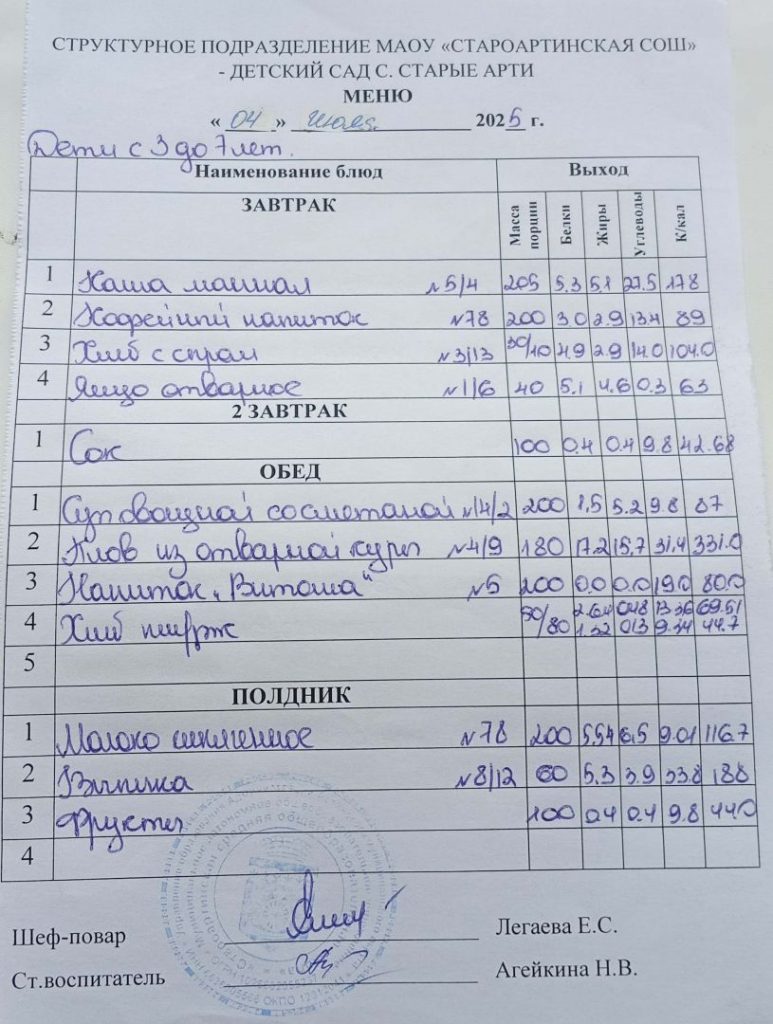 СТРУКТУРНОЕ ПОДРАЗДЕЛЕНИЕ МАОУ «СТАРОАРТИНСКАЯ СОШ»
- ДЕТСКИЙ САД С. СТАРЫЕ АРТИ
МЕНЮ
« 04 » июля 2025 г.
Дети с 3 до 7 лет.
Наименование блюд Выход
ЗАВТРАК Масса порции Белки Жиры Углеводы К/кал
1 Каша манная №5/4 205 5.3 5.1 27.5 178
2 Кофейный напиток №78 200 3.0 2.9 13.4 89
3 Хлеб с сыром №3/13 30/10 4.9 2.9 14.0 104.0
4 Яйцо отварное №1/6 40 5.1 4.6 0.3 63
2 ЗАВТРАК
1 Сок 100 0.4 0.4 9.8 42.68
ОБЕД
1 Суп овощной со сметаной №14/2 200 1,5 5.2 9.8 87
2 Плов из отварной куры №4/9 180 17.2 15,7 31.4 331.0
3 Напиток „Витоша" №5 200 0.0 0.0 19.0 80.0
4 Хлеб пш/рж 2.64 0.48 13.36 69.51
1.32 013 9.34 44.7
5
ПОЛДНИК
1 Молоко кипяченное №78 200 5.54 6,5 9.01 116.7
2 Выпечка №8/12 60 5.3 3.9 33.8 188
3 Фрукты 100 0.4 0.4 9.8 44.0
4
Шеф-повар Легаева Е.С.
Ст.воспитатель Агейкина Н.В.